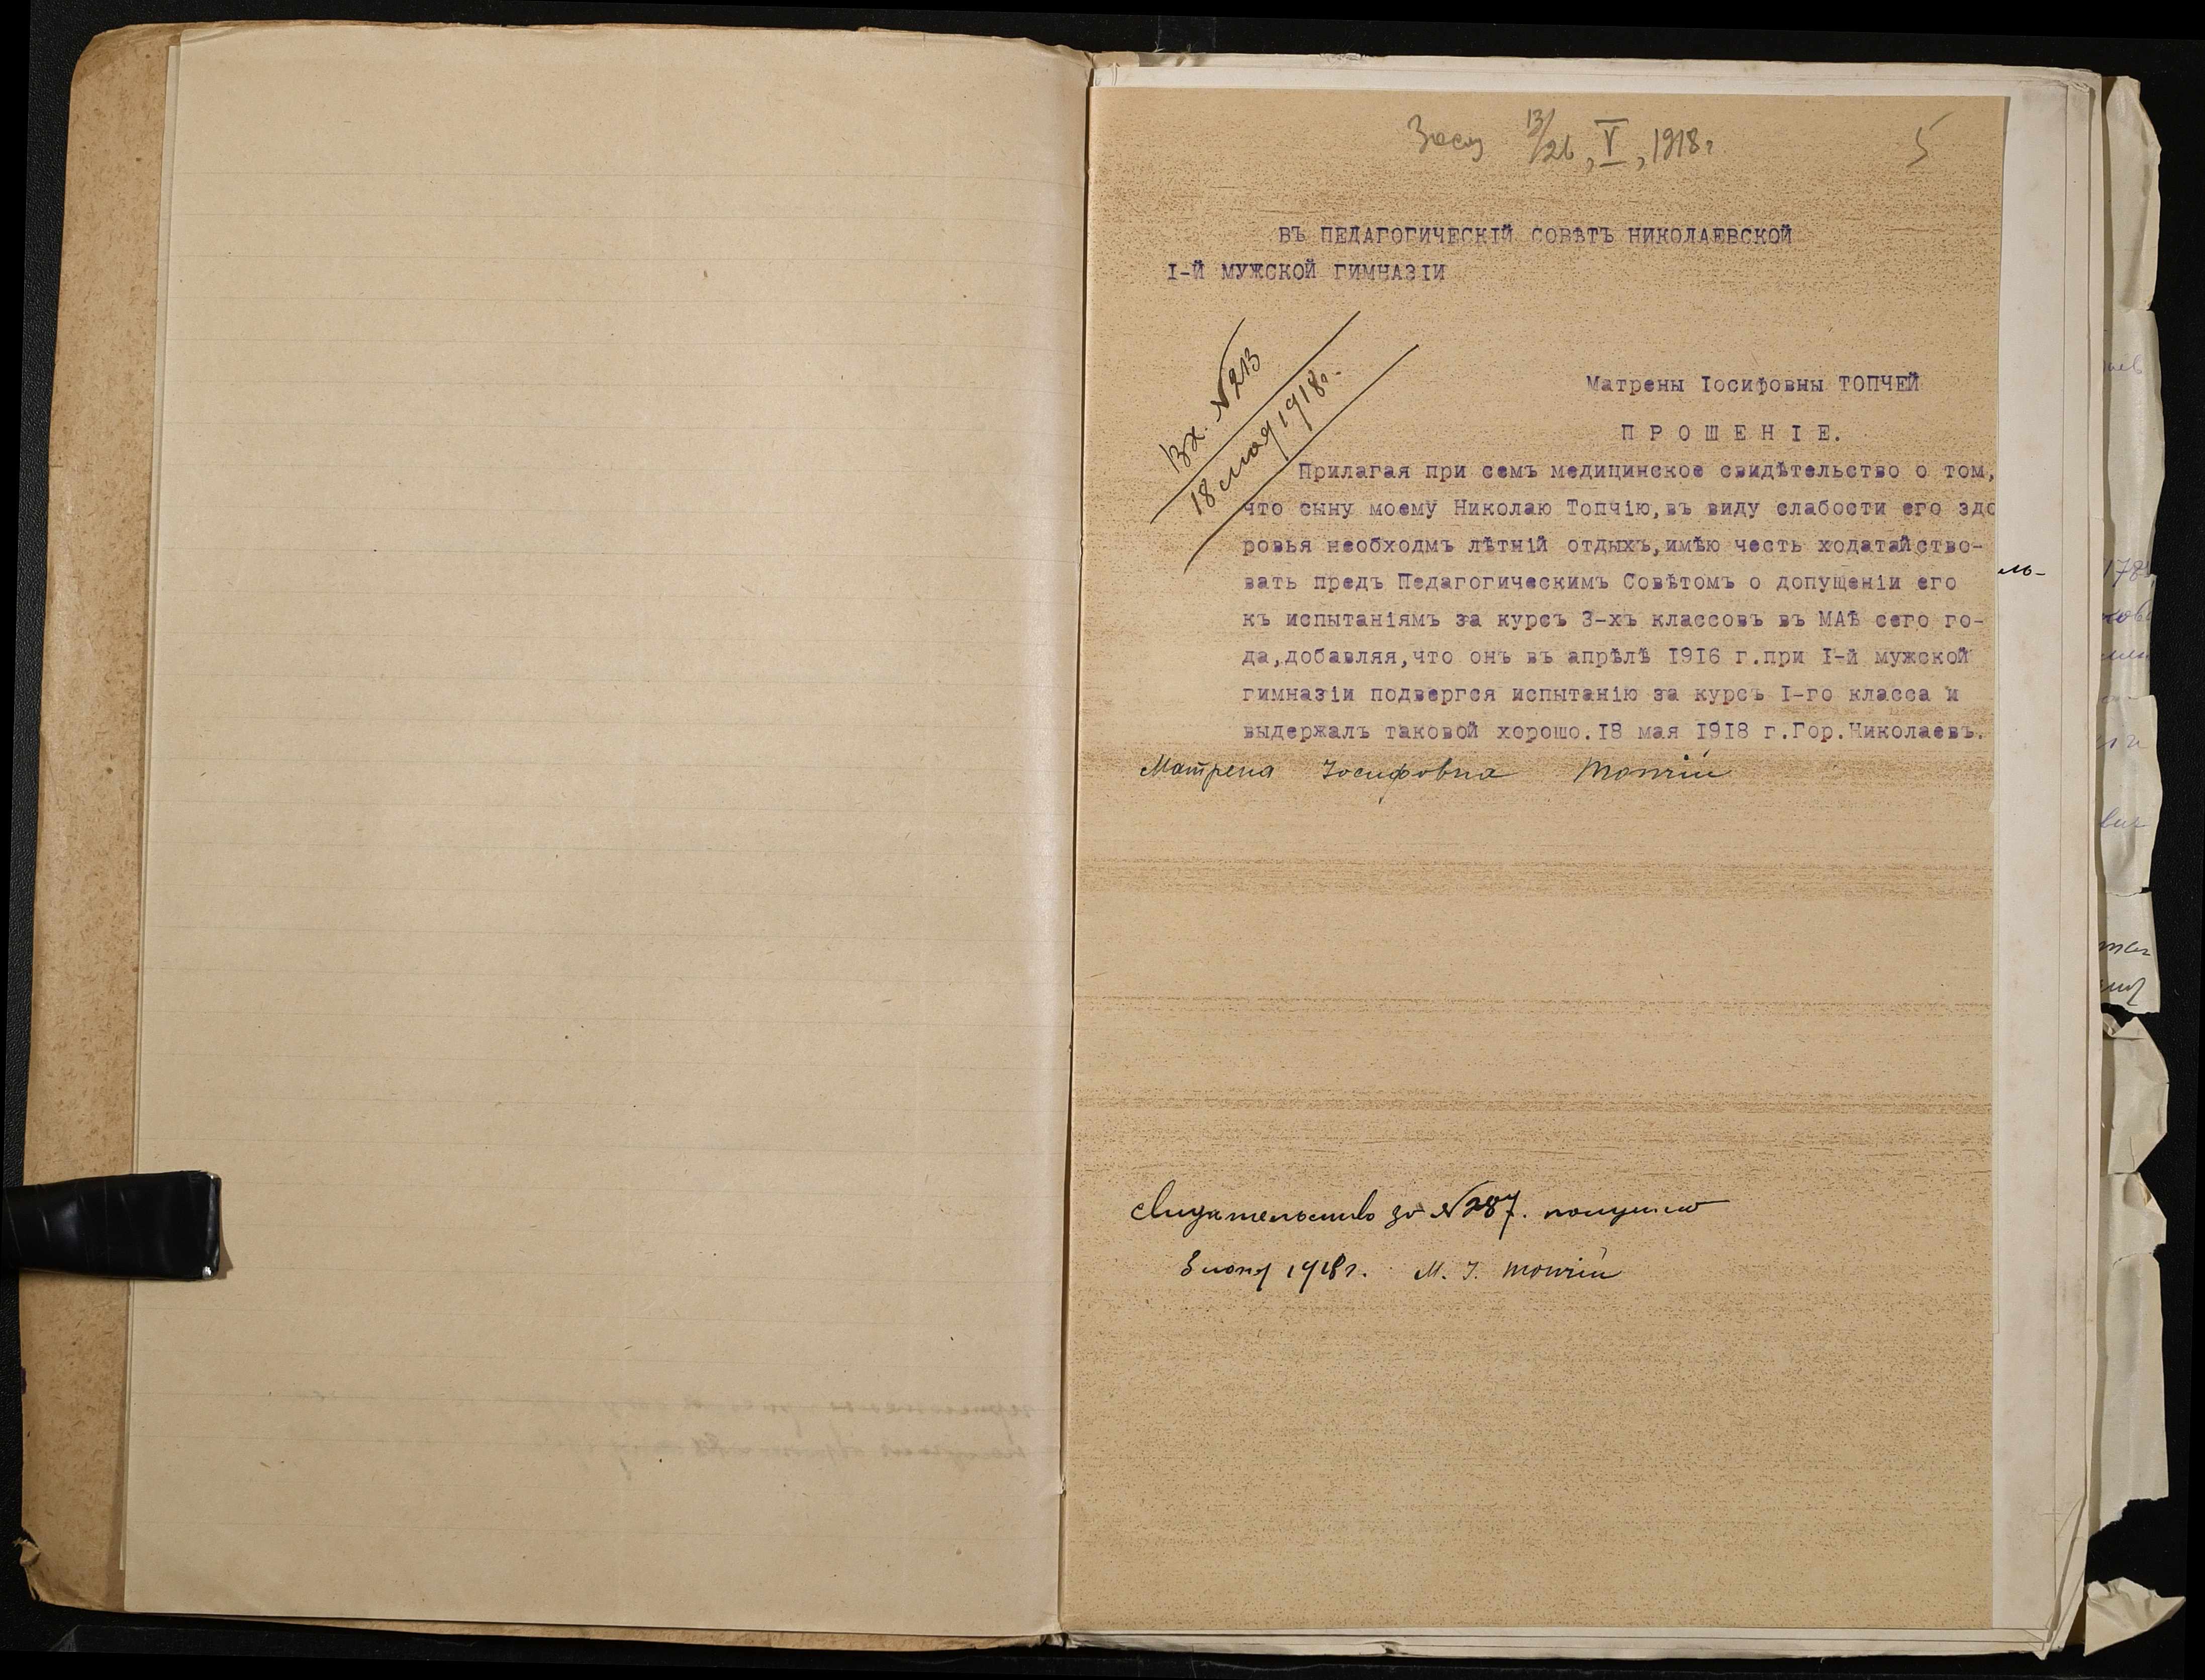 Засѣд 13/26, V, 1918 г. 5
ВЪ ПЕДАГОГИЧЕСКІЙ СОВѢТЪ НИКОЛАЕВСКОЙ
I-Й МУЖСКОЙ ГИМНАЗІИ
Вх. №213
18 мая 1918г.
Матрены Іосифовны ТОПЧЕЙ
П Р О Ш Е Н І Е.
Прилагая при семъ медицинское свидѣтельство о том,
что сыну моему Николаю Топчію,въ виду слабости его здо
ровья необходмъ лѣтній отдыхъ,имѣю честь ходатайство-
вать предъ Педагогическимъ Совѣтомъ о допущеніи его
къ испытаніямъ за курсъ 3-хъ классовъ въ МАѢ сего го-
да,добавляя,что онъ въ апрѣлѣ 1916 г.при I-й мужской
гимназіи подвергся испытанію за курсъ I-го класса и
выдержалъ таковой хорошо.I8 мая 1918 г.Гор.Николаевъ.
Матрена Іосифовна Топчій
Свидательство за №287. получила
3 июня 1918г. М. І. Топчій